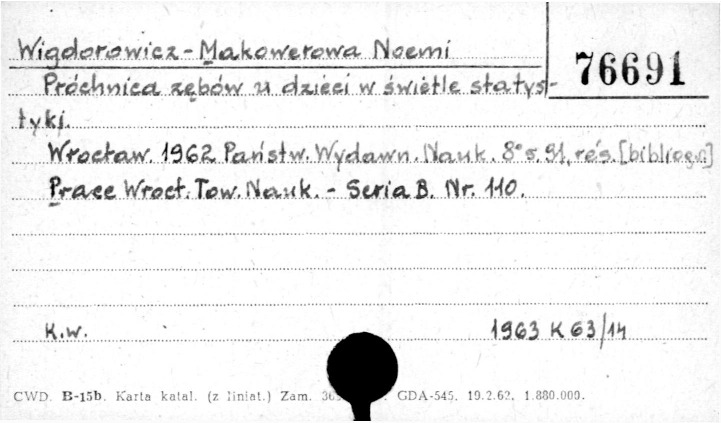 Wigdorowicz-Makowerowa Noemi
76691
Próchnica zębów u dzieci w świetle statys-
tyki.
Wrocław. 1962 Państw. Wydawn. Nauk. 8° s. 91, rés. [bibliogr.]
Prace Wrocł. Tow. Nauk. - Seria B. Nr. 110.
K.w. 1963 K 63/14
CWD. B-15b. Karta katal. (z liniat.) Zam. GDA-545. 19.2.62. 1.880.000.